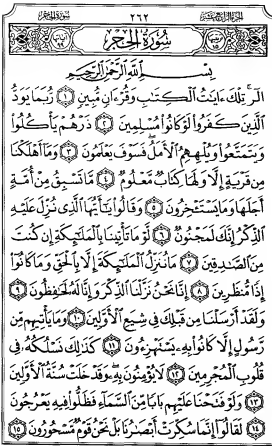 الجزء الرابع عشر ٢٦٢ سورة الحجر
سورة الحجر
بِسْمِ اللَّهِ الرَّحْمَٰنِ الرَّحِيمِ
الٓرۚ تِلْكَ ءَايَٰتُ ٱلْكِتَٰبِ وَقُرْءَانٍ مُّبِينٍ ١ رُّبَمَا يَوَدُّ
ٱلَّذِينَ كَفَرُوا۟ لَوْ كَانُوا۟ مُسْلِمِينَ ٢ ذَرْهُمْ يَأْكُلُوا۟
وَيَتَمَتَّعُوا۟ وَيُلْهِهِمُ ٱلْأَمَلُۖ فَسَوْفَ يَعْلَمُونَ ٣ وَمَآ أَهْلَكْنَا
مِن قَرْيَةٍ إِلَّا وَلَهَا كِتَابٌ مَّعْلُومٌ ٤ مَّا تَسْبِقُ مِنْ أُمَّةٍ
أَجَلَهَا وَمَا يَسْتَـْٔخِرُونَ ٥ وَقَالُوا۟ يَٰٓأَيُّهَا ٱلَّذِى نُزِّلَ عَلَيْهِ
ٱلذِّكْرُ إِنَّكَ لَمَجْنُونٌ ٦ لَّوْ مَا تَأْتِينَا بِٱلْمَلَٰٓئِكَةِ إِن كُنتَ
مِنَ ٱلصَّٰدِقِينَ ٧ مَا نُنَزِّلُ ٱلْمَلَٰٓئِكَةَ إِلَّا بِٱلْحَقِّ وَمَا كَانُوٓا۟
إِذًا مُّنظَرِينَ ٨ إِنَّا نَحْنُ نَزَّلْنَا ٱلذِّكْرَ وَإِنَّا لَهُۥ لَحَٰفِظُونَ ٩
وَلَقَدْ أَرْسَلْنَا مِن قَبْلِكَ فِى شِيَعِ ٱلْأَوَّلِينَ ١٠ وَمَا يَأْتِيهِم مِّن
رَّسُولٍ إِلَّا كَانُوا۟ بِهِۦ يَسْتَهْزِءُونَ ١١ كَذَٰلِكَ نَسْلُكُهُۥ فِى
قُلُوبِ ٱلْمُجْرِمِينَ ١٢ لَا يُؤْمِنُونَ بِهِۦۖ وَقَدْ خَلَتْ سُنَّةُ ٱلْأَوَّلِينَ
١٣ وَلَوْ فَتَحْنَا عَلَيْهِم بَابًا مِّنَ ٱلسَّمَآءِ فَظَلُّوا۟ فِيهِ يَعْرُجُونَ
١٤ لَقَالُوٓا۟ إِنَّمَا سُكِّرَتْ أَبْصَٰرُنَا بَلْ نَحْنُ قَوْمٌ مَّسْحُورُونَ ١٥